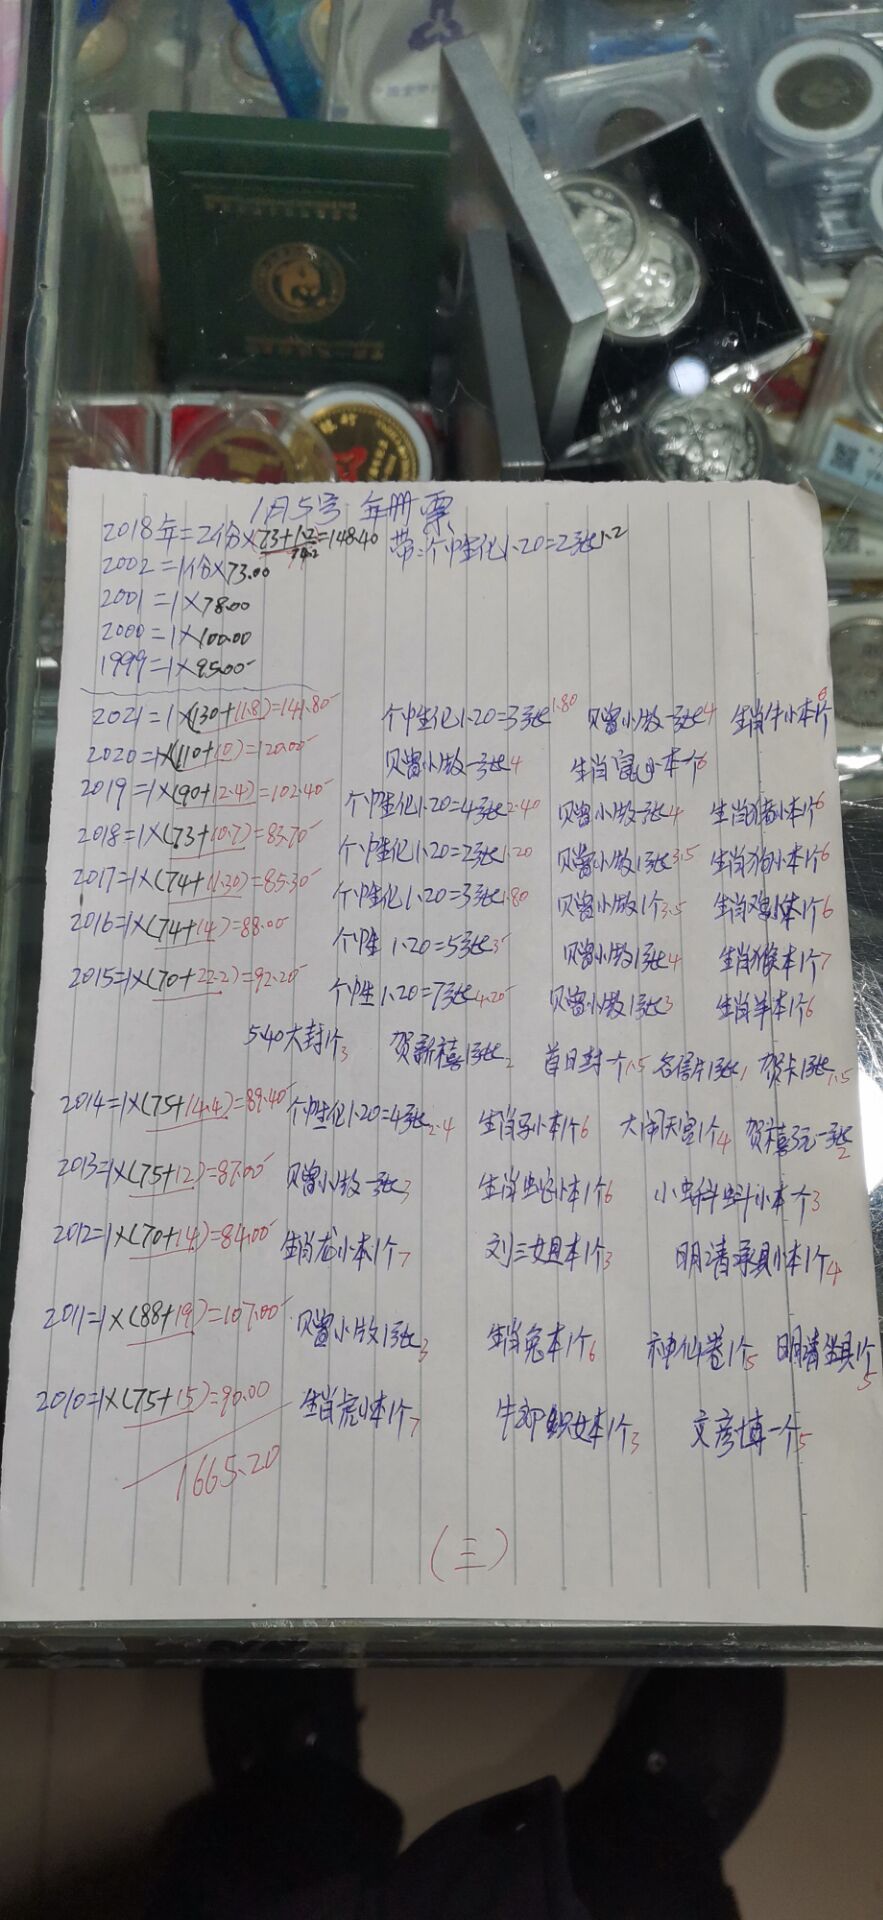 1月5号 年册票
2018年=2份×73+1.2=148.40 带:个性化1.20=2张1.2
74.2
2002=1份×73.00
2001=1×78.00
2000=1×100.00
1999=1×95.00
2021=1×(130+11.8)=141.80 个性化1.20=3张1.80 贝曾小版一张4 生肖牛小本1个6
2020=1×(110+10)=120.00 贝曾小版一张4 生肖鼠小本一个6
2019=1×(90+12.4)=102.40 个性化1.20=4张2.40 贝曾小版一张4 生肖猪小本1个6
2018=1×(73+10.7)=83.70 个性化1.20=2张1.20 贝曾小版1张3.5 生肖狗小本1个6
2017=1×(74+11.30)=85.30 个性化1.20=3张1.80 贝曾小版1个3.5 生肖鸡小本1个6
2016=1×(74+14)=88.00 个性1.20=5张3 贝曾小版1张4 生肖猴本1个7
2015=1×(70+22.2)=92.20 个性1.20=7张4.20 贝曾小版1张3 生肖羊本1个6
5.40大封1个3 贺新禧1张2 首日封一个1.5 名信片1张1 贺卡1张1.5
2014=1×(75+14.4)=89.40 个性化1.20=4张2.4 生肖马小本1个6 大闹天宫1个4 贺禧3元一张2
2013=1×(75+12)=87.00 贝曾小版一张3 生肖蛇小本1个6 小蝌蚪小本一个3
2012=1×(70+14)=84.00 生肖龙小本1个7 刘三姐本1个3 明清家具小本1个4
2011=1×(88+19)=107.00 贝曾小版1张3 生肖兔本1个6 神仙卷1个5 明清坐具1个5
2010=1×(75+15)=90.00 生肖虎小本1个7 牛郎织女本1个3 文彦博一个5
1665.20
(三)